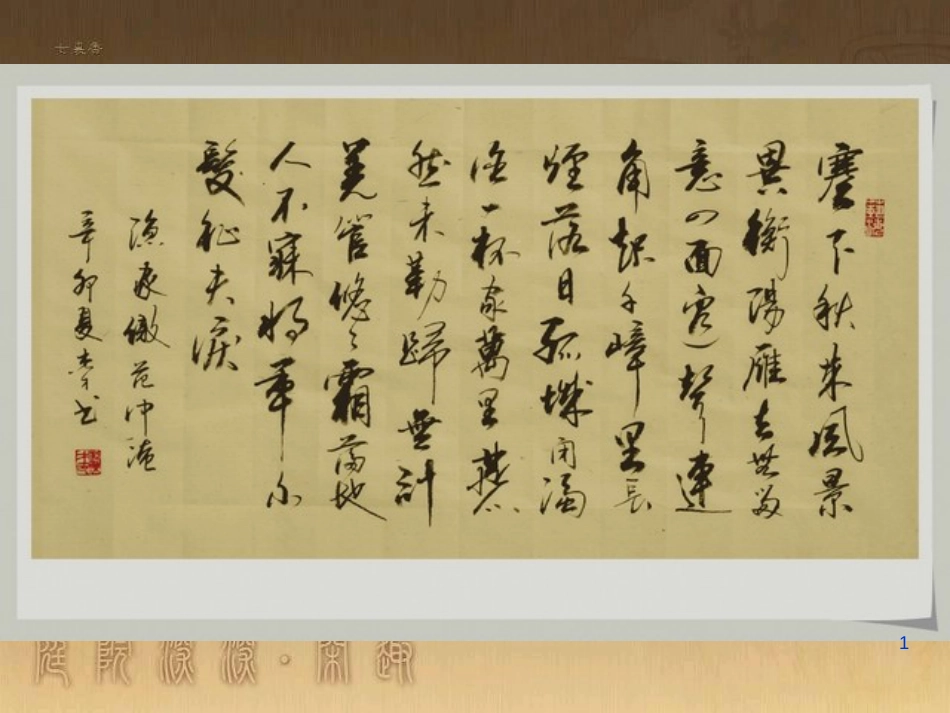 塞下秋来風景
異衡陽雁去無留
意四面邊聲連
角起千嶂里長
煙落日孤城闭濁
酒一杯家萬里燕
然未勒歸無計
羌管悠〻霜滿地
人不寐将軍白
髮征夫淚
漁家傲范仲淹
辛卯夏李书
庭院深深·闲趣
1